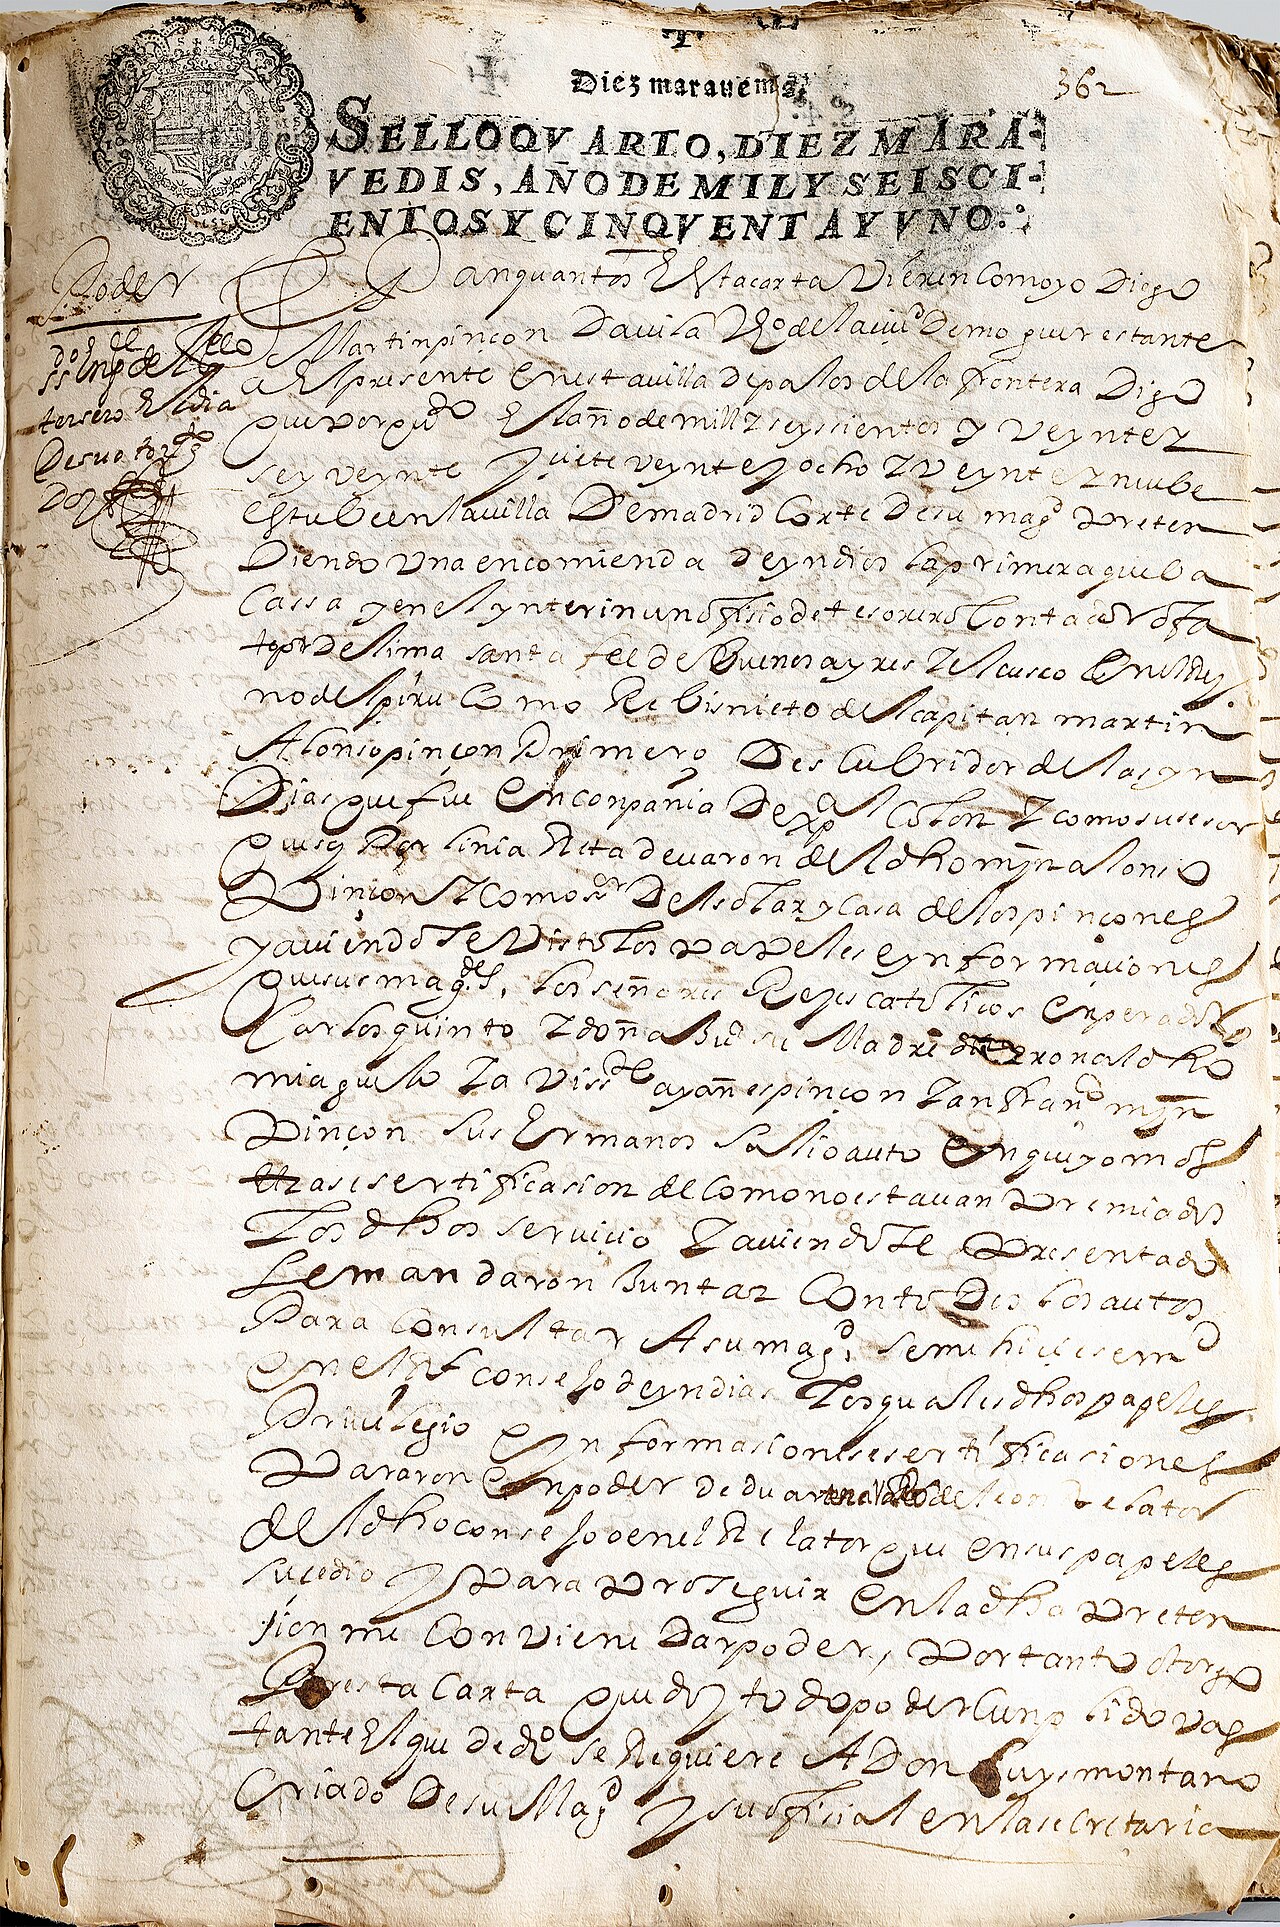 Diez marauemS.
362
SELLO QVARTO, DIEZ MARA-
VEDIS, AÑO DE MIL Y SEISCI-
ENTOS Y CINQVENTA Y VNO.
Poder
tersero El dia
Desu otorgto
Sepan quantos Esta carta Vieren Como yo Diego
Martin pinçon Davila Vo de la ciud De moguer estante
a El presente En esta villa de palos de la frontera Digo
que por El año de mill y seyssientos y Veynte y
sey veynte y siete veynte y ocho y Veynte y nuebe
Estube en la villa De madrid Corte De su magd preten
Diendo Una encomienda De yndios la primera que ba
Cassa y en el ynterin un offisio de tesorero Contador o fa
tor De lima santa fee de Buenos ayres y el cusco En el Rey
no del piru Como Rebisnieto del capitan martin
Alonso pinçon Primero Descubridor de las yn
Dias que fue En conpania De xpl Colon y como susesor
que soy Por linia Reta de varon del dho myn alonso
Pinçon y Como sr Del solar y Casa de los pinçones
y aviendose Visto los papeles e ynformaçiones
que sus magdes, los señores Reyes catolicos Enperador
Carlos quinto y doña Juana su Madre dieron al dho
mi aguelo y a Viste yañes pinçon y an franco myn
Pinçon sus Ermanos salio auto En que yo mos
trase sertificasion de Como no estavan premiados
Los dhos servicio y aviendole Presentado
se mandaron Juntar Con todos los autos
Para Consultar A su magd, se me hiciese md
En el Rl consejo de yndias Los quales dhos papeles
Privilegio E ynformasiones e sertificasiones
Pararon En poder de de leon Relator
del dho consejo o en el Relator que En sus papeles
susedio y Para Proseguir En la dha Preten
sion me Conviene Dar poder, Por tanto otorgo
Por esta Carta que doy todo poder Cunplido vas
tante El que de dro se Requiere A Don Luys montano
Criado De su Magd y su offisial En la secretaria